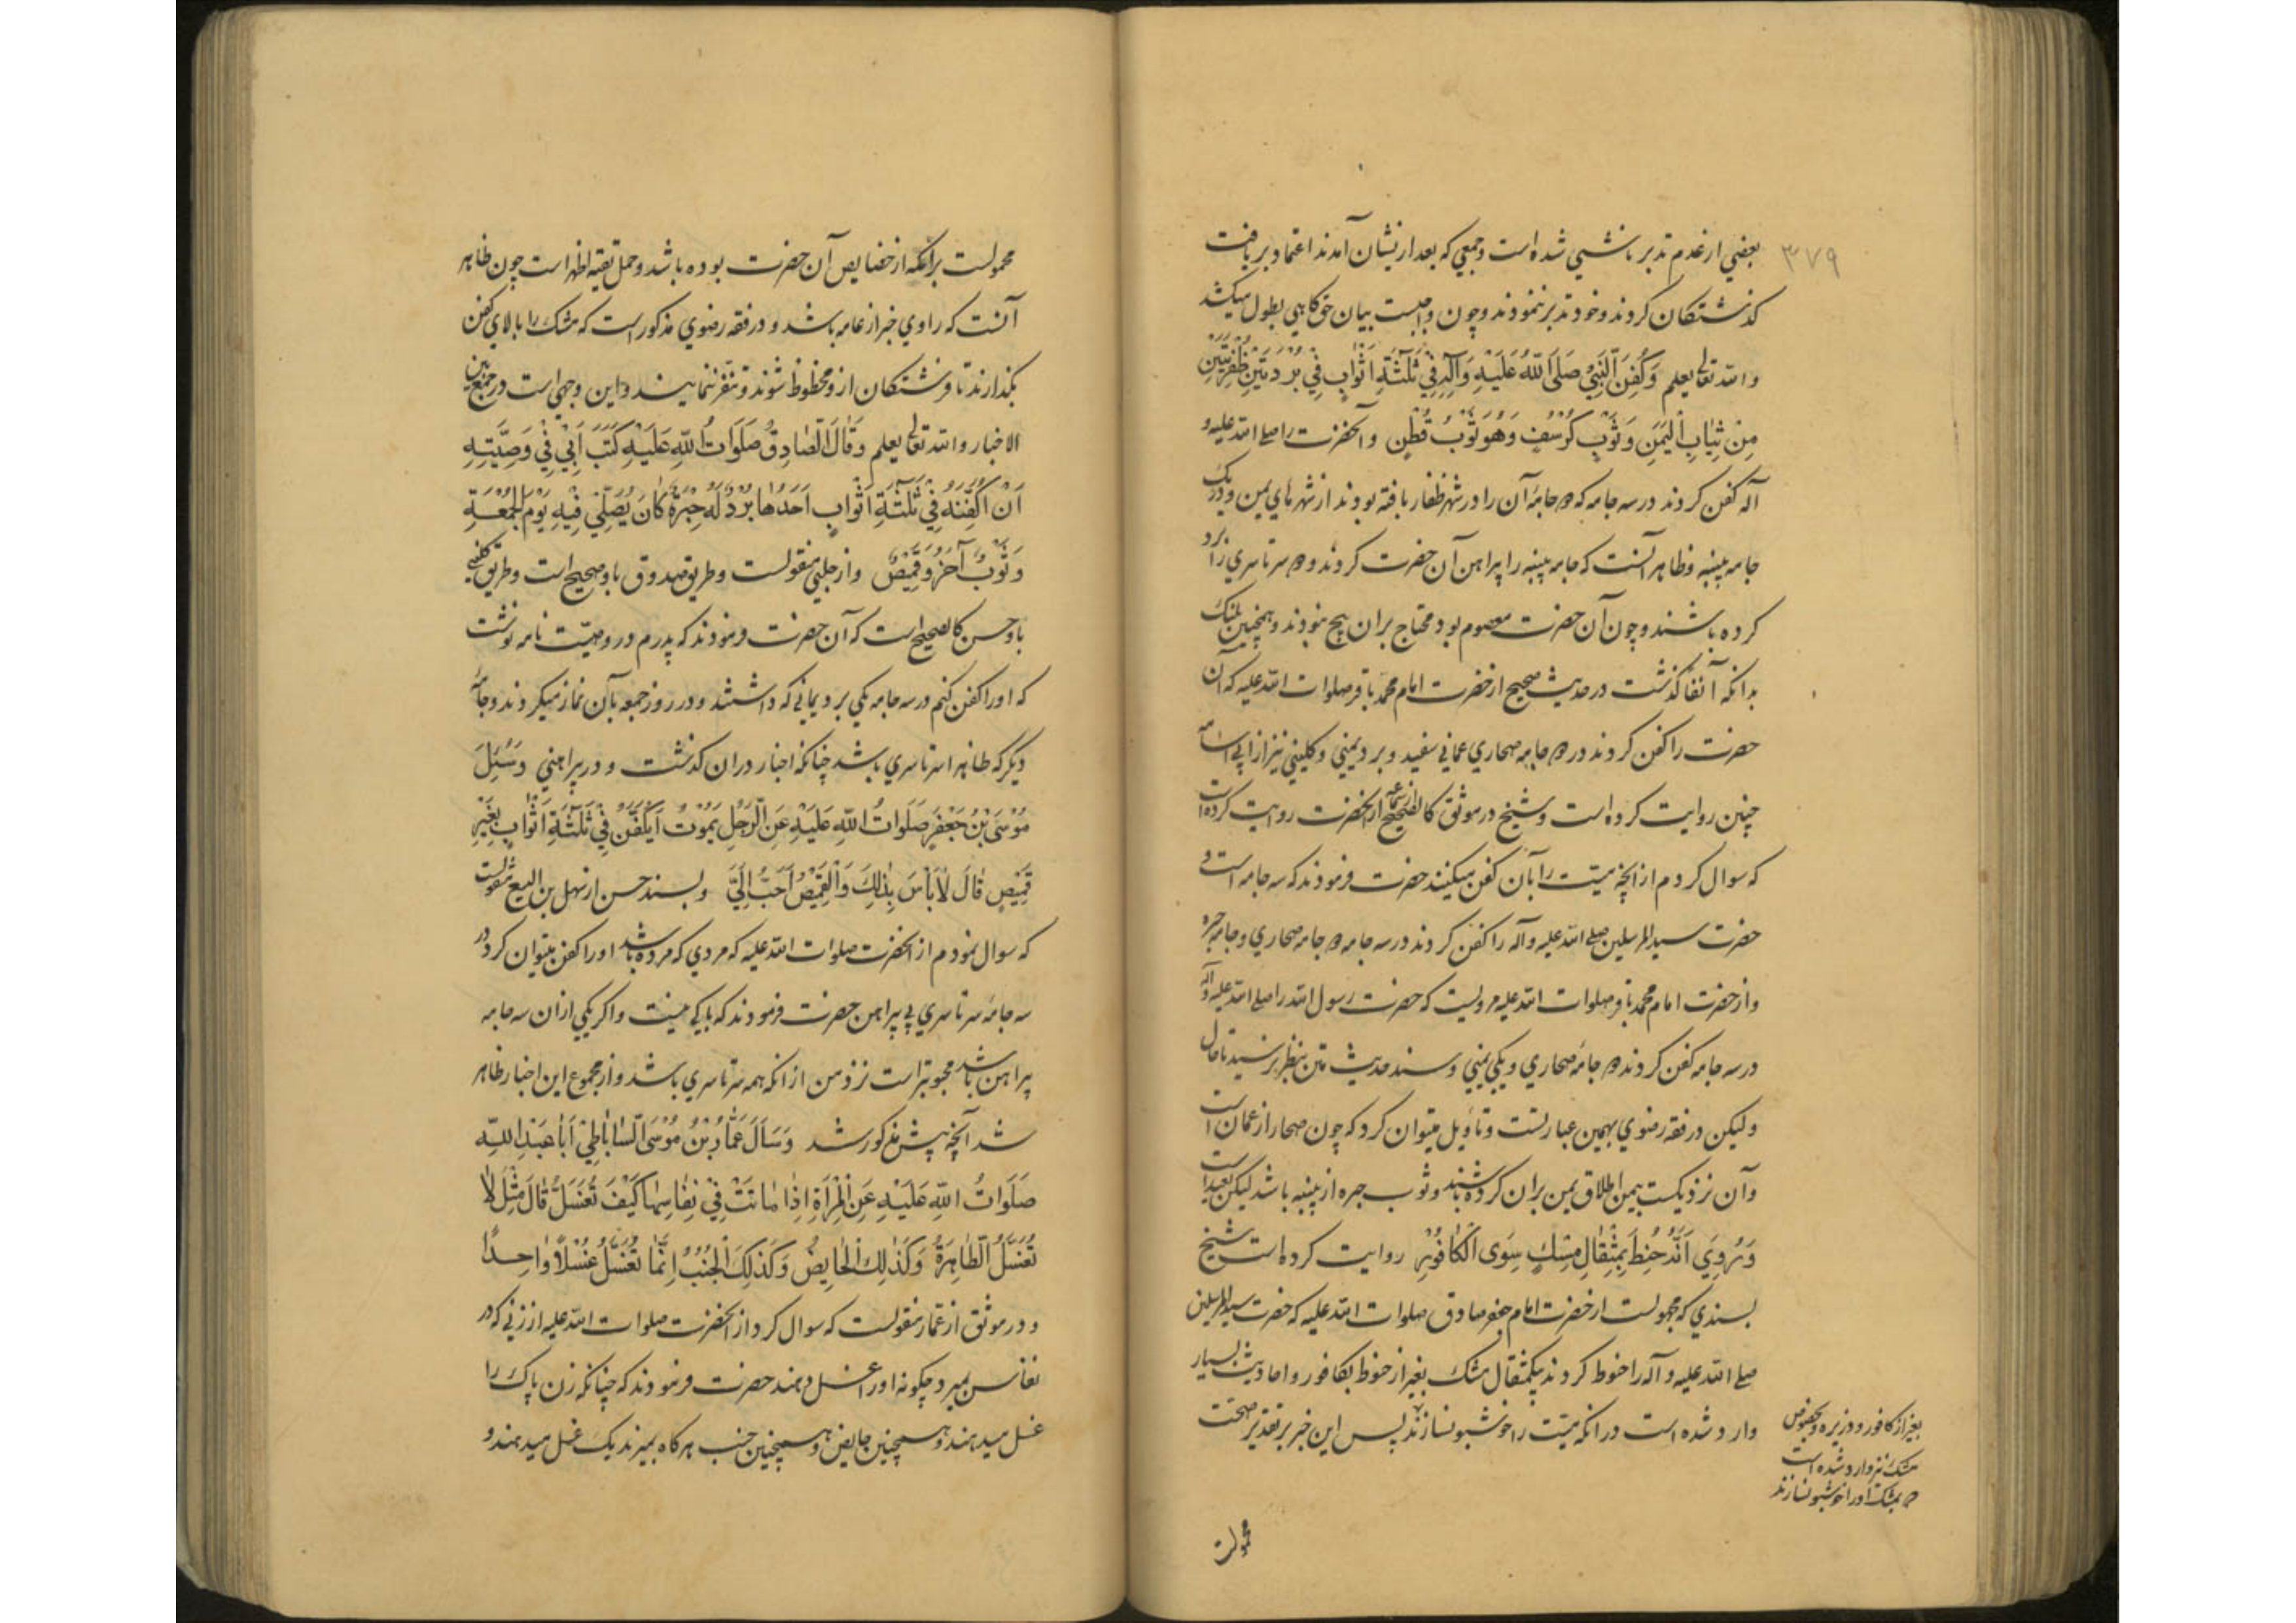 ۳۷۹
بعضي از عدم تدبر ناشي شده است و جمعي که بعد از ایشان آمدند اعتماد بر یافت
گذشتگان کردند و خود تدبر ننمودند و چون واجبست بیان حق گاهي بطول میکشد
و الله تعالی یعلم وَ کُفِّنَ النَّبِيُّ صَلَّی اللّٰهُ عَلَیْهِ وَ آلِهِ فِي ثَلٰثَةِ اَثْوَابٍ فِي بُرْدَتَیْنِ ظَفْرِیَّتَیْنِ
مِنْ ثِیَابِ الْیَمَنِ وَ ثَوْبِ کُرْسُفٍ وَ هُوَ ثَوْبُ قُطْنٍ و آنحضرت را صلی الله علیه و
آله کفن کردند در سه جامه که دو جامۀ آن را در شهر ظفار بافته بودند از شهرهاي یمن و در یک
جامه پنبه و ظاهر آنست که جامه پنبه را پیراهن آن حضرت کردند و دو سرتاسري را برد
کرده باشند و چون آن حضرت معصوم بود محتاج بران پیچ نبودند و همچنین بلنگ
بدانکه آنفا گذشت در حدیث صحیح از حضرت امام محمد باقر صلوات الله علیه که آن
حضرت را کفن کردند در دو جامه صحاري عماني سفید و برد یمني و کلیني نیز از ابي اسامه
چنین روایت کرده است و شیخ در موثق کالصحیح از سماعه از آنحضرت روایت کرده است
که سوال کردم از آنچه میت را بآن کفن میکنند حضرت فرمودند که سه جامه است و
حضرت سید المرسلین صلی الله علیه و آله را کفن کردند در سه جامه دو جامه صحاري و جامه حبره
و از حضرت امام محمد باقر صلوات الله علیه مرویست که حضرت رسول الله را صلی الله علیه و آله
در سه جامه کفن کردند دو جامۀ صحاري و یکي یمني و سند حدیث متن بنظر نرسید تا حال
ولیکن در فقه رضوي بهمین عبارتست و تاویل میتوان کرد که چون صحار از عمان است
و آن نزدیکست بیمن اطلاق یمن بران کرده باشند و ثوب حبره از پنبه باشد لیکن بعید است
وَ رُوِيَ اَنَّهُ حُنِّطَ بِمِثْقَالِ مِسْكٍ سِوَی الْکَافُورِ روایت کرده است شیخ
بسندي که مجهولست از حضرت امام جعفر صادق صلوات الله علیه که حضرت سید المرسلین
صلی الله علیه و آله را حنوط کردند بیکمثقال مشک بغیر از حنوط بکافور و احادیث بسیار
وارد شده است در آنکه میّت را خوشبو نسازند پس این خبر بر تقدیر صحّت
بغیر از کافور و ذریره و بخصوص
مشک نیز وارد شده است
که بمشک او را خوشبو نسازند
محمولست
محمولست برآنکه از خصایص آن حضرت بوده باشد و حمل تقیه اظهر است چون ظاهر
آنست که راوي خبر از عامه باشد و در فقه رضوي مذکور است که مشک را بالاي کفن
بگذارند تا فرشتگان ازو محظوظ شوند و تنفر ننمایند و این وجهي است در جمع بین
الاخبار و الله تعالی یعلم وَ قَالَ الصَّادِقُ صَلَوَاتُ اللّٰهِ عَلَیْهِ کَتَبَ اَبِي فِي وَصِیَّتِهِ
اَنْ اُکَفِّنَهُ فِي ثَلٰثَةِ اَثْوَابٍ اَحَدُهَا بُرْدٌ لَهُ حِبَرَةٌ کَانَ یُصَلِّي فِیهِ یَوْمَ الْجُمُعَةِ
وَ ثَوْبٌ آخَرُ وَ قَمِیصٌ و از حلبي منقولست و طریق صدوق باو صحیح است و طریق کلیني
باو حسن کالصحیح است که آن حضرت فرمودند که پدرم در وصیّت نامه نوشت
که او را کفن کنم در سه جامه یکي برد یماني که داشتند و در روز جمعه بآن نماز میکردند و جامۀ
دیگر که ظاهرا سرتاسري باشد چنانکه اخبار دران گذشت و در پیراهني وَ سُئِلَ
مُوسَی بْنُ جَعْفَرٍ صَلَوَاتُ اللّٰهِ عَلَیْهِ عَنِ الرَّجُلِ یَمُوتُ اَیُکَفَّنُ فِي ثَلٰثَةِ اَثْوَابٍ بِغَیْرِ
قَمِیصٍ قَالَ لَا بَأْسَ بِذٰلِكَ وَ الْقَمِیصُ اَحَبُّ اِلَيَّ و بسند حسن از سهل بن الیسع منقولست
که سوال نمودم از آنحضرت صلوات الله علیه که مردي که مرده باشد او را کفن میتوان کرد در
سه جامۀ سرتاسري بي پیراهن حضرت فرمودند که باکي نیست و اگر یکي ازان سه جامه
پیراهن باشد محبوبتر است نزد من از انکه همه سرتاسري باشد و از مجموع این اخبار ظاهر
شد آنچه پیش مذکور شد وَ سَاَلَ عَمَّارُ بْنُ مُوسَی السَّابَاطِيُّ اَبَا عَبْدِ اللّٰهِ
صَلَوَاتُ اللّٰهِ عَلَیْهِ عَنِ الْمَرْأَةِ اِذَا مَاتَتْ فِي نِفَاسِهَا کَیْفَ تُغَسَّلُ قَالَ مِثْلَ مَا
تُغَسَّلُ الطَّاهِرَةُ وَ کَذٰلِكَ الْحَایِضُ وَ کَذٰلِكَ الْجُنُبُ اِنَّمَا تُغَسَّلُ غُسْلًا وَاحِدًا
و در موثق از عمار منقولست که سوال کرد از آنحضرت صلوات الله علیه از زني که در
نفاس بمیرد چگونه او را غسل دهند حضرت فرمودند که چنانکه زن پاک را
غسل میدهند و همچنین حایض و همچنین جنب هرگاه بمیرند یک غسل میدهند و